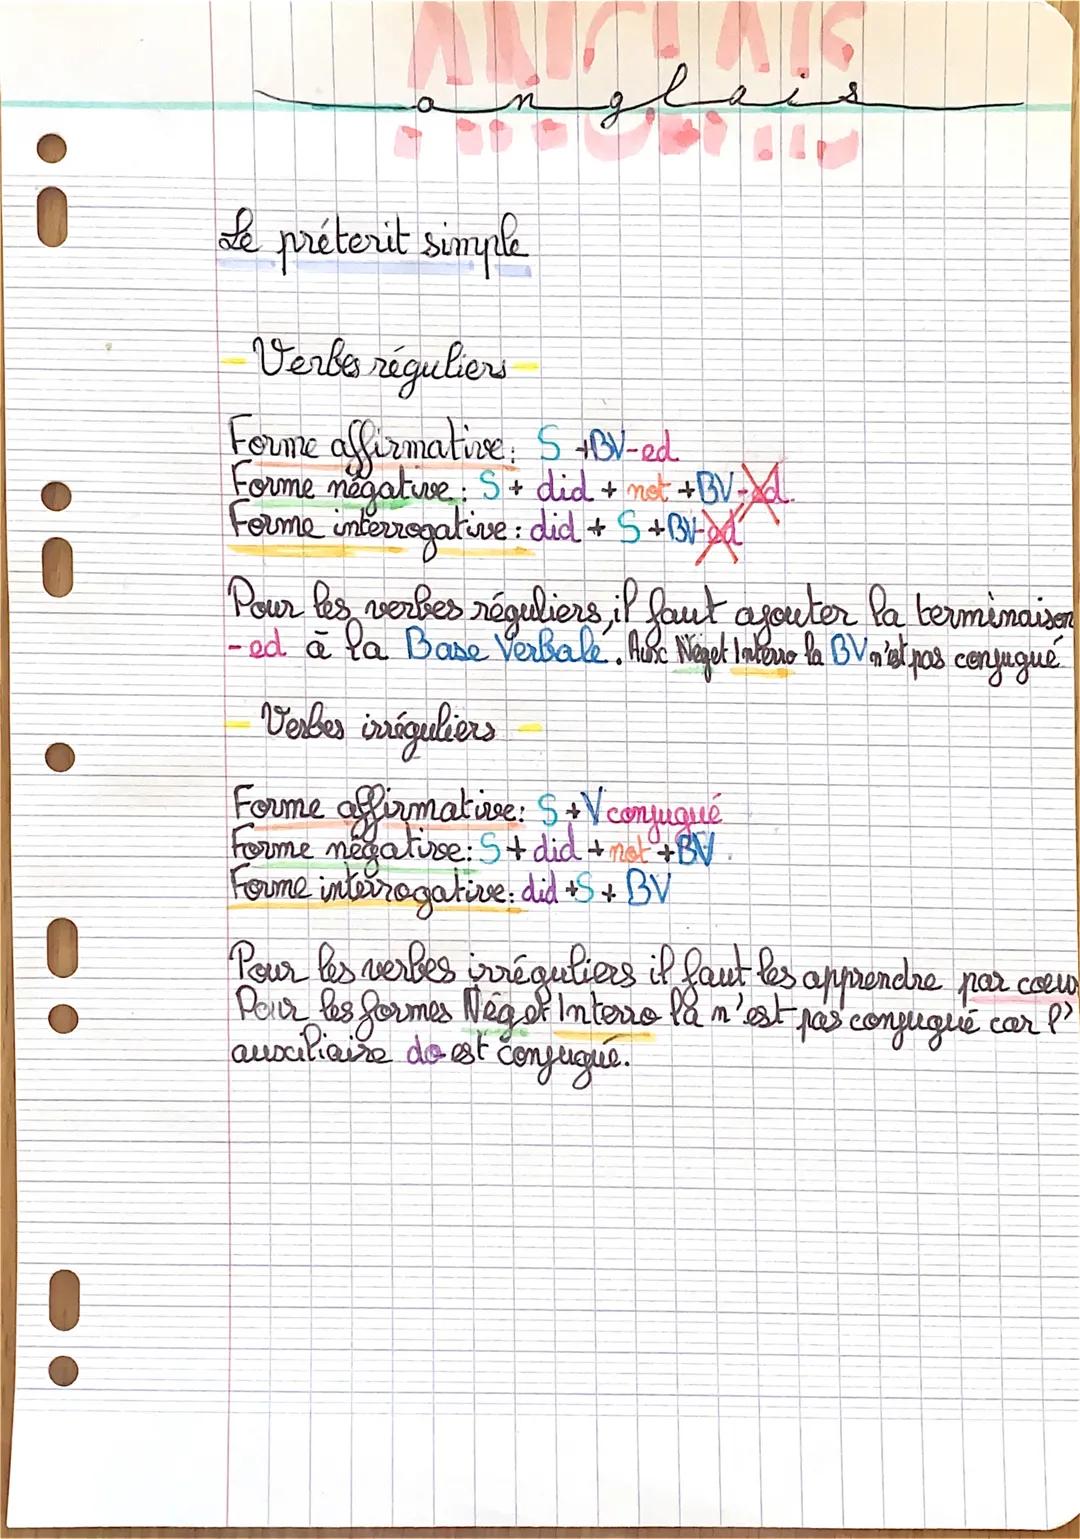 ANGLAIS
anglais
Le préterit simple
- Verbes réguliers -
Forme affirmative: S +BV-ed
Forme négative: S + did + not + BV-ed
Forme interrogative: did + S + BV-ed
Pour les verbes réguliers, il faut ajouter la terminaison
-ed à la Base Verbale. Neg et Interro la BV n'est pas conjugué
- Verbes irréguliers -
Forme affirmative: S + V conjugué
Forme négative: S + did + not + BV.
Forme interrogative: did + S + BV
Pour les verbes irréguliers il faut les apprendre par coeur
Pour les formes Nég et Interro la n'est pas conjugué car l'
auxiliaire do est conjugué.